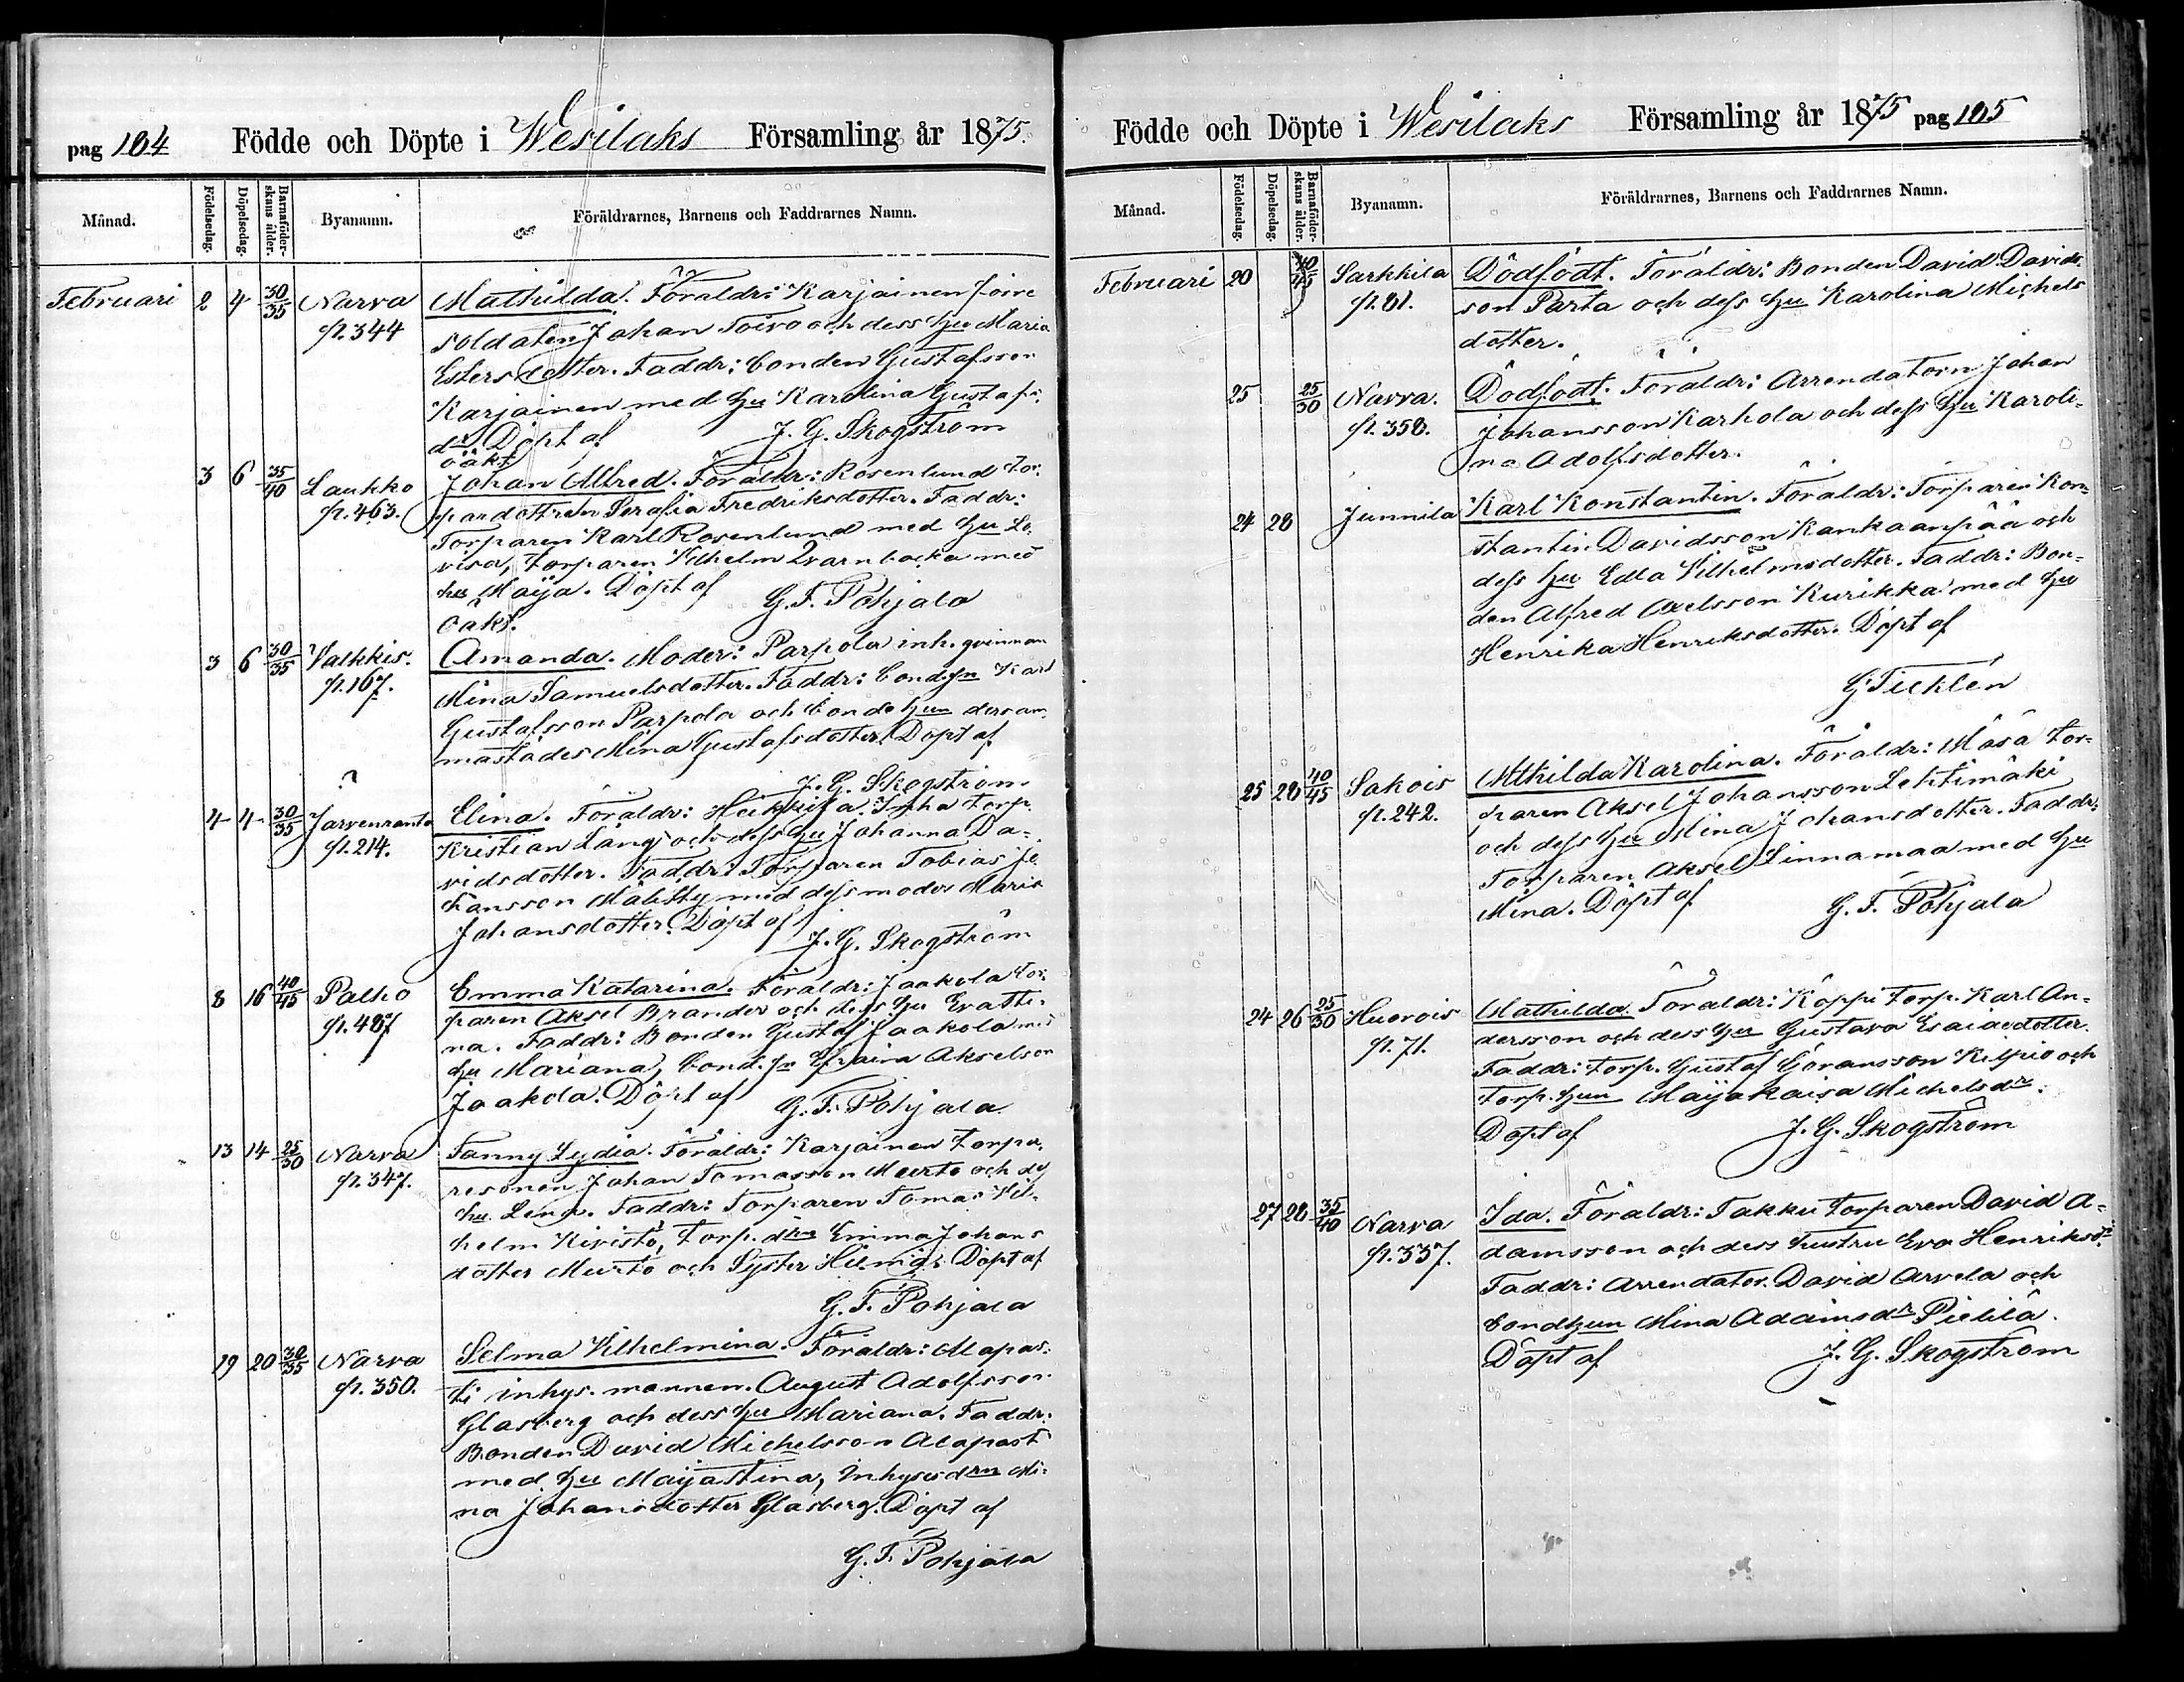 pag 104 Födde och Döpte i Wesilaks Församling år 1875.
Månad. Födelsedag. Döpelsedag. Barnaföderskans ålder. Byanamn. Föräldrarnes, Barnens och Faddrarnes Namn.
Februari 2 4 30/35 Narva Mathilda. Föräldr: Karjainen
p. 344 soldaten Johan Toivo och dess hu Maria
Estersdotter. Faddr: bonden Gustafsson
Karjainen med hu Karolina Gustafs
dr. Döpt af J. G. Skogström
oäkt
3 6 35/40 Laukko Johan Alfred. Föräldr: Rosenlund tor-
p. 463. pardottren Serafia Fredriksdotter. Faddr:
Torparen Karl Rosenlund med hu Lo-
visa, torparen Vilhelm Qvarnbacka med
hu Maija. Döpt af G. F. Pohjala
Oäkt.
3 6 30/35 Valkkis. Amanda. Moder: Parpola inh. qvinnan
p. 167. Mina Samuelsdotter. Faddr: bond.sn Karl
Gustafsson Parpola och bonde hun dersam-
mastädes Mina Gustafsdotter. Döpt af
? J. G. Skogström
4 4 30/35 Jarvenranta Elina. Föräldr: Heikkilä torp.
p. 214. Kristian Lång och dess hu Johanna Da-
vidsdotter. Faddr: Torparen Tobias Jo-
hansson med dess moder Maria
Johansdotter. Döpt af J. G. Skogström
8 16 40/45 Palho Emma Katarina. Föräldr: Jaakola tor-
p. 487 paren Aksel Brander och dess hu Evasti-
na. Faddr: Bonden Gustaf Jaakola med
hu Mariana, bond.sn Efraim Akselson
Jaakola. Döpt af G. F. Pohjala.
13 14 25/30 Narva Fanny Lydia. Föräldr: Karjainen torpa-
p. 347. resonen Johan Tomasson Murto och dess
hu Lena. Faddr: Torparen Tomas Vil-
helm Kivistö, torp.dtrn Emma Johans
dotter Murto och Syster Hilma. Döpt af
G. F. Pohjala
19 20 30/35 Narva Selma Vilhelmina. Föräldr: Alapas-
p. 350. ti inhys. mannen. August Adolfsson
Glasberg och dess hu Mariana. Faddr:
Bonden David Michelsson Alapast
med hu Maijastina, Inhyses dtrn Mi-
na Johansdotter Glasberg. Döpt af
G. F. Pohjala
Födde och Döpte i Wesilaks Församling år 1875 pag 105
Månad. Födelsedag. Döpelsedag. Barnaföderskans ålder. Byanamn. Föräldrarnes, Barnens och Faddrarnes Namn.
Februari 20 40/45 Sarkkila Dödfödt. Föräldr: Bonden David Davids-
p. 81. son Parta och dess hu Karolina Michels
dotter.
25 25/30 Narva. Dödfödt. Föräldr: Arrendatorn Johan
p. 358. Johansson Karhola och dess hu Karoli-
na Adolfsdotter.
24 28 Junnila Karl Konstantin. Föräldr: Torparen Kon-
stantin Davidsson Kankaanpää och
dess hu Edla Vilhelmsdotter. Faddr: Bon-
den Alfred Axelsson Kurikka med hu
Henrika Henriksdotter. Döpt af
G Ticklén
25 28 40/45 Sakois Mthilda Karolina. Föräldr: Mäsä tor-
p. 242. paren Aksel Johansson Lehtimäki
och dess hu Mina Johansdotter. Faddr:
Torparen Aksel Linnamaa med hu
Mina. Döpt af G. F. Pohjala
24 26 25/30 Huovois Mathilda. Föräldr: Koppi torp. Karl An-
p. 71. dersson och dess hu Gustava Esaiasdotter.
Faddr: torp. Gustaf Göransson Kilpiö och
torp. hun Maijakaisa Michelsdr.
Döpt af J. G. Skogström
27 28 35/40 Narva Ida. Föräldr: Takku torparen David A-
p. 337. damsson och dess hustru Eva Henriksdr
Faddr: Arrendator. David Arvela och
bondhun Mina Adamsdr Pietilä.
Döpt af J. G. Skogström